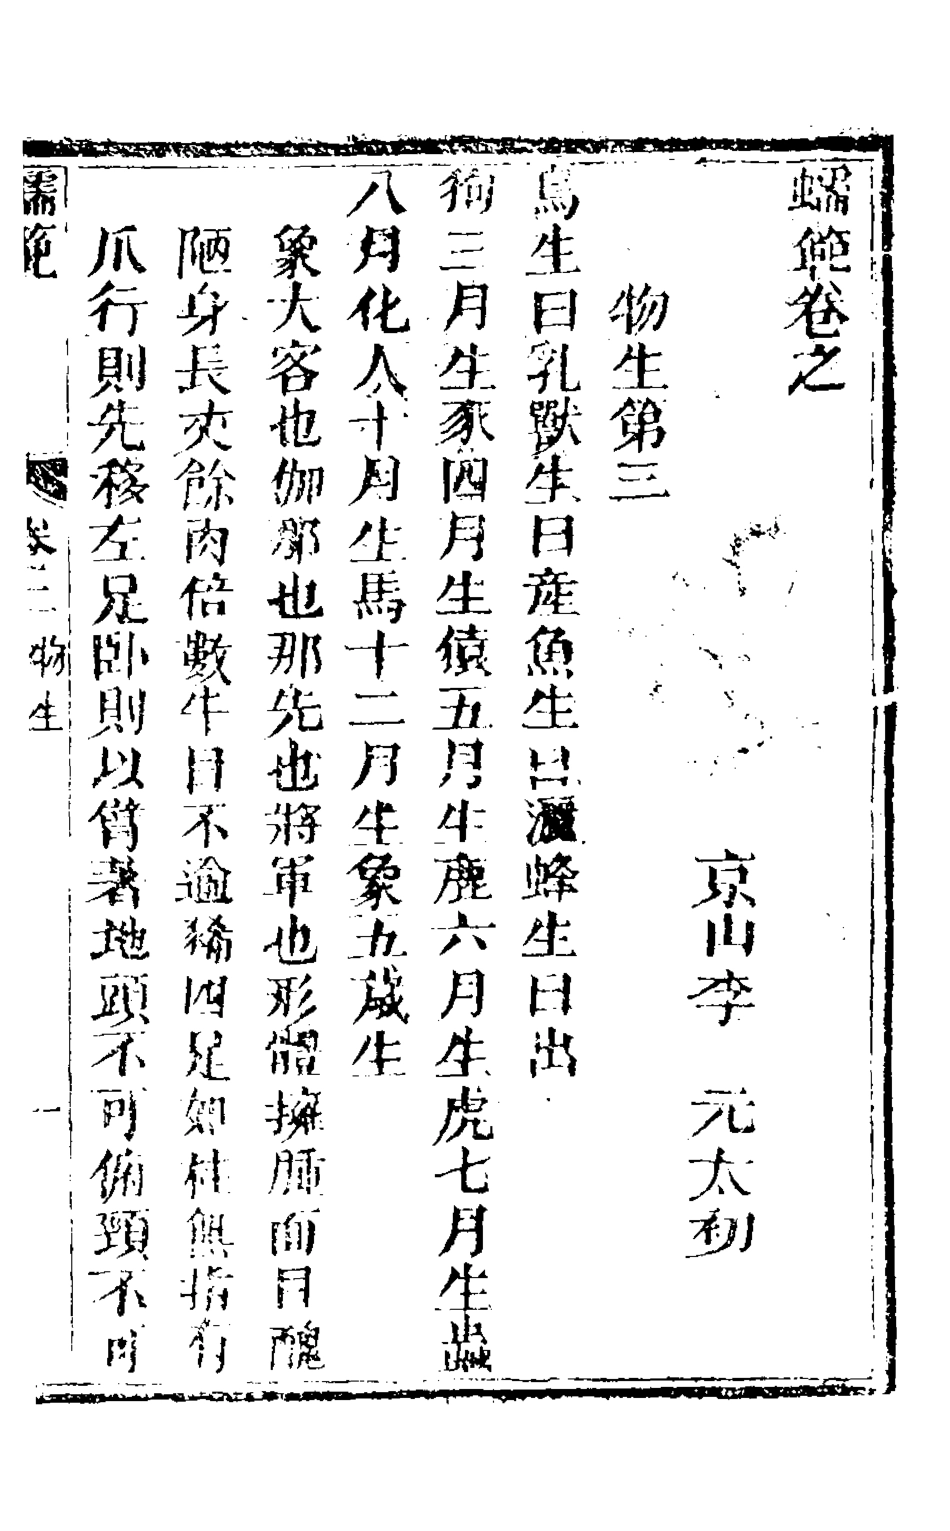 蠕範卷之
物生第三
京山李　元太初
鳥生曰乳獸生曰産魚生曰灑蜂生曰出
狗三月生豕四月生猿五月生鹿六月生虎七月生蟲
八月化人十月生馬十二月生象五歲生
象大客也伽那也那先也將軍也形體擁腫面目醜
陋身長丈餘肉倍數牛目不逾豨四足如柱無指有
爪行則先移左足卧則以臂著地頭不可俯頸不可
蠕範
卷三 物生
一